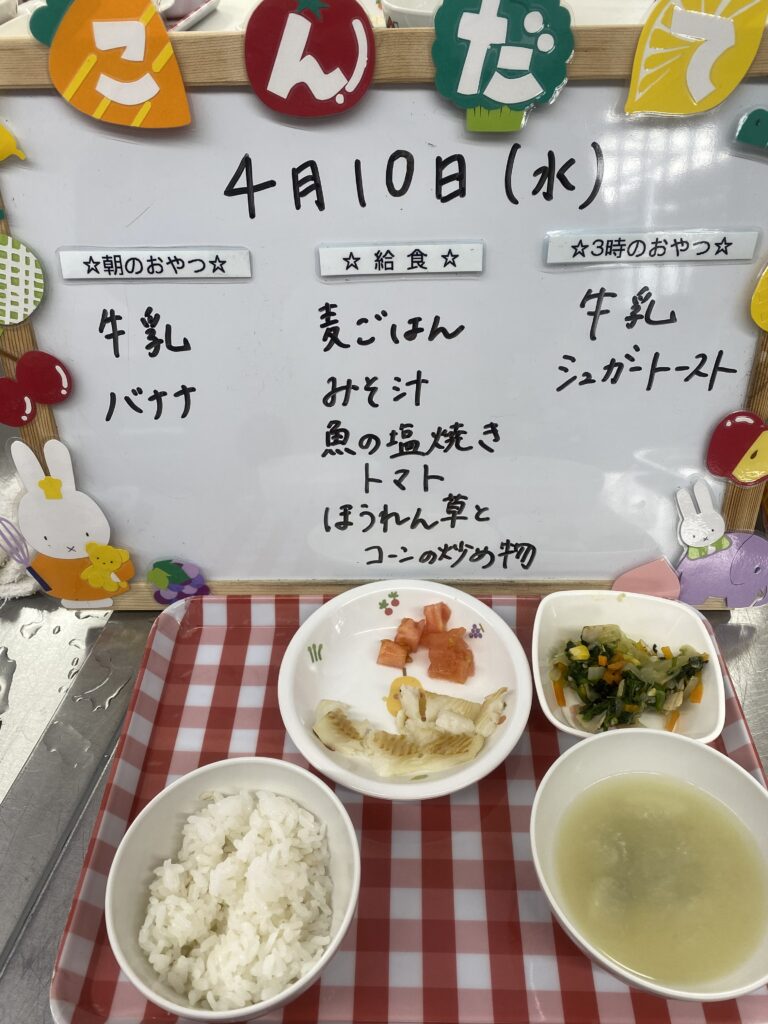 こんだて
4月10日(水)
☆朝のおやつ☆
牛乳
バナナ
☆ 給 食 ☆
麦ごはん
みそ汁
魚の塩焼き
トマト
ほうれん草と
コーンの炒め物
☆3時のおやつ☆
牛乳
シュガートースト